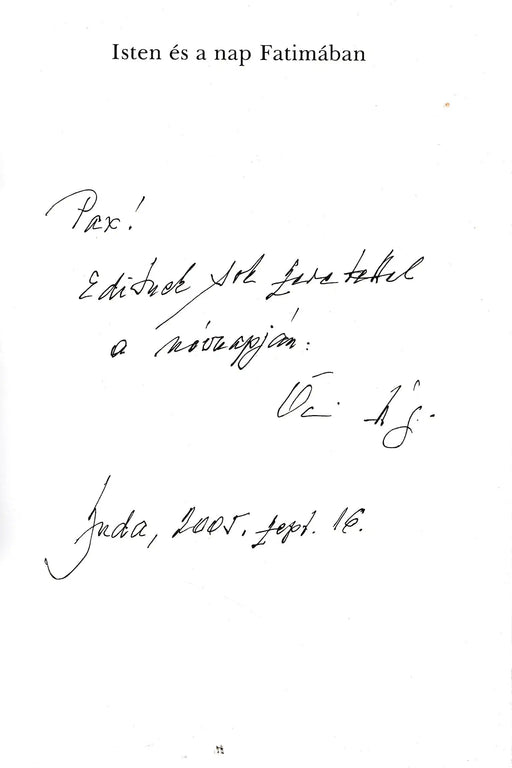 Isten és a nap Fatimában
Pax!
Editnek sok szeretettel
a névnapján:
Buda, 2005. szept. 16.